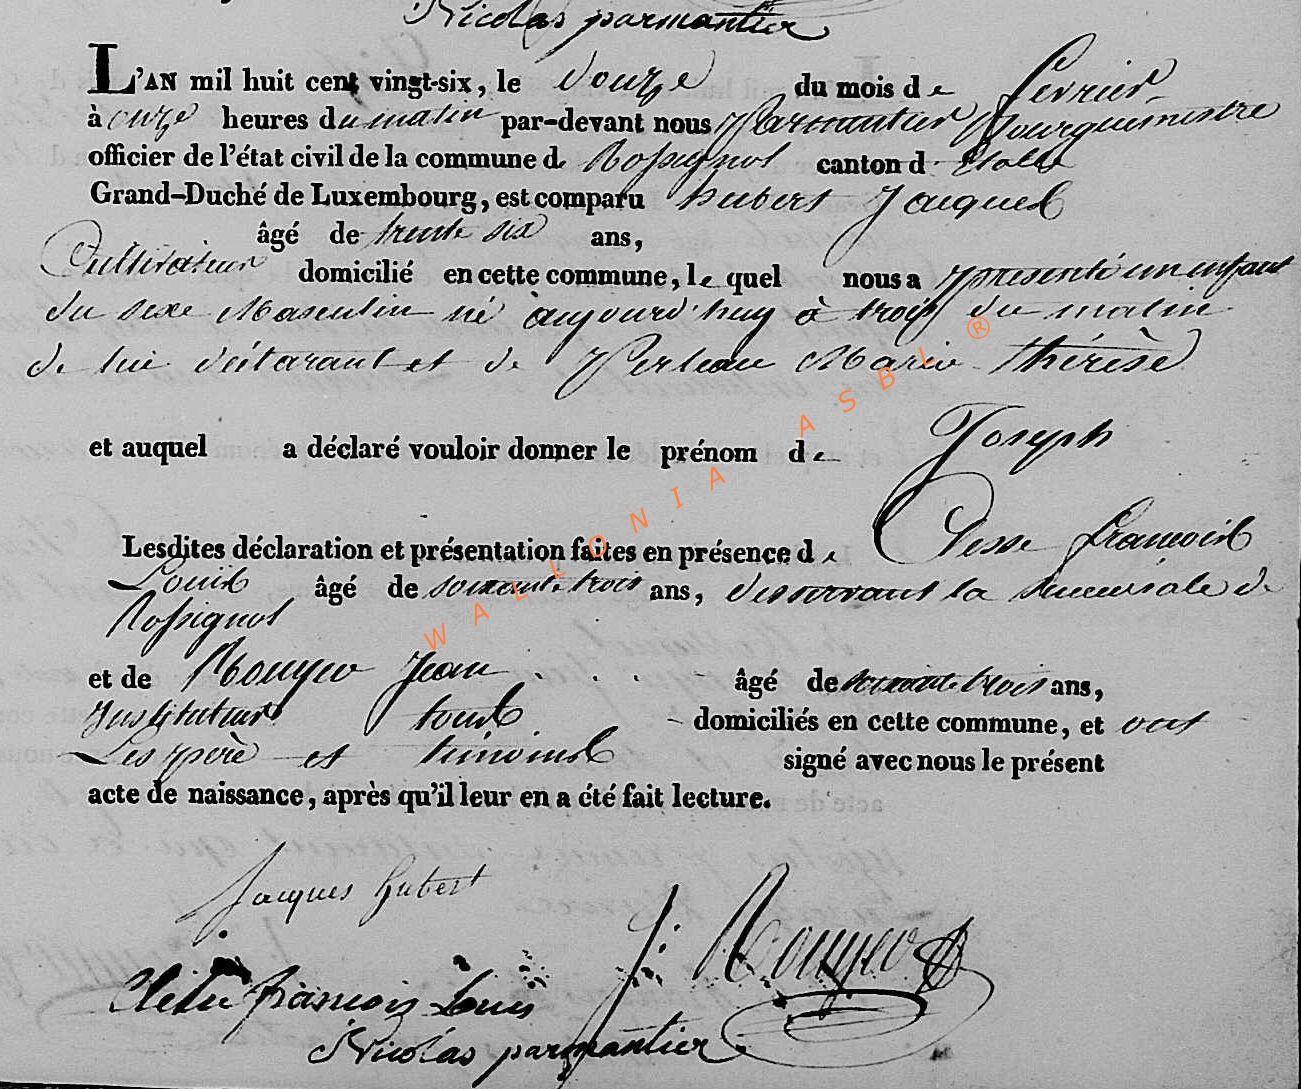 Nicolas parmantier
L'AN mil huit cent vingt-six, le douze du mois de fevrier
à onze heures du matin par-devant nous Parmantier Bourguemestre
officier de l'état civil de la commune de Rossignol canton d' Etalle
Grand-Duché de Luxembourg, est comparu hubert Jacques
âgé de trente six ans,
Cultivateur domicilié en cette commune, le quel nous a presenté un enfant
du sexe Masculin né aujourd'huy à trois du matin
de lui déclarant et de Perleau Marie thérèse
et auquel a déclaré vouloir donner le prénom de Joseph
Lesdites déclaration et présentation faites en présence de francois
Louis âgé de soixante trois ans, desservant la succursale de
Rossignol
et de Jean âgé de soixante trois ans,
Instituteur tous domiciliés en cette commune, et ont
Les père et témoins signé avec nous le présent
acte de naissance, après qu'il leur en a été fait lecture.
Jacques hubert
J:
francois Louis
Nicolas parmantier
WALLONIA ASBL ®